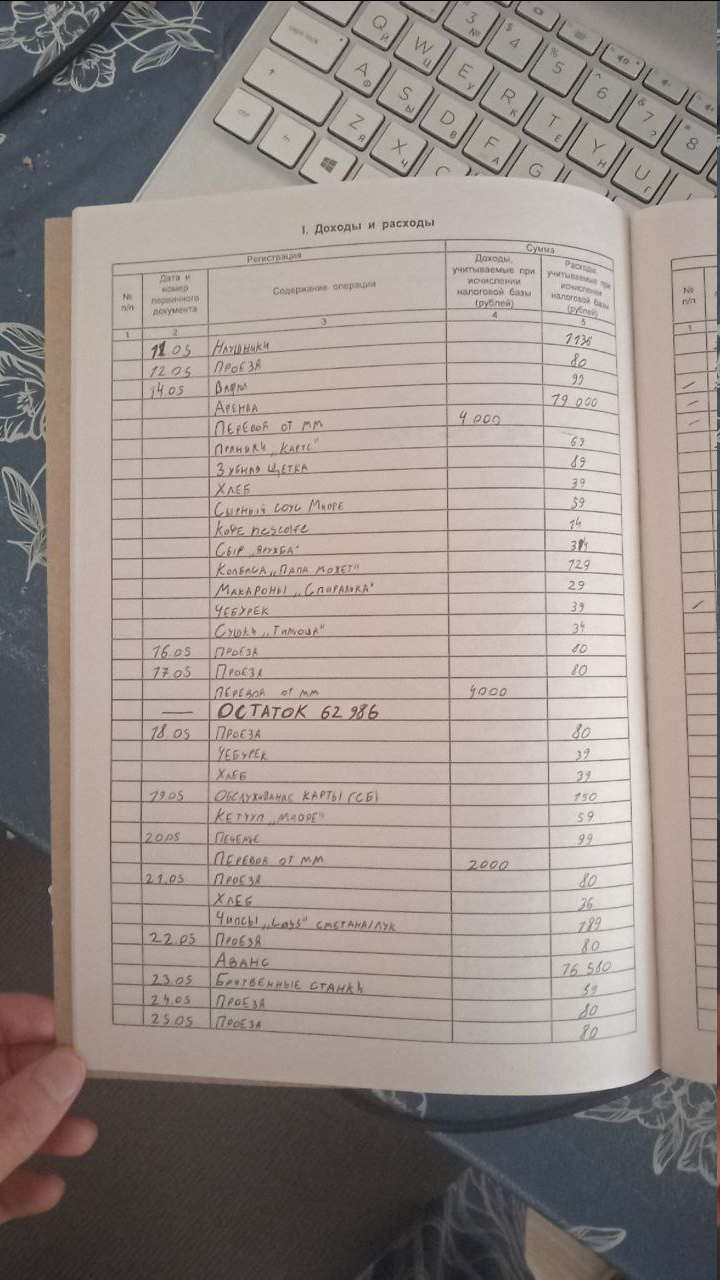 caps lock
Q Й
W Ц
3 №
$ 4
% 5
^ 6
& 7 ?
* 8
A Ф
S Ы
E У
R К
D В
T Е
F А
Y Н
U Г
Z Я
X Ч
C
G
ctrl
fn
I. Доходы и расходы
Регистрация Сумма
№ п/п Дата и номер первичного документа Содержание операции Доходы, учитываемые при исчислении налоговой базы (рублей) Расходы, учитываемые при исчислении налоговой базы (рублей)
1 2 3 4 5
11 05 Наушники 1136
12 05 Проезд 80
14.05 Вафли 99
Аренда 19 000
Перевод от ММ 4 000
Пряники „Каргс" 69
Зубная щетка 89
Хлеб 39
Сырный соус Миоре 59
Кофе nescafe 14
Сыр „Дружба"
Колбаса „Папа может" 129
Макароны „Спиралька" 29
Чебурек 39
Сушки „Тимоша" 34
16 05 Проезд
17 05 Проезд 80
Перевод от мм 4000
— Остаток 62 986
18 05 Проезд 80
Чебурек 39
Хлеб 39
19.05 Обслуживание карты (СБ) 150
Кетчуп „Миоре" 59
20.05 Печенье 99
Перевод от мм 2000
21.05 Проезд 80
Хлеб 36
Чипсы „Lays" сметана/лук 189
22.05 Проезд 80
Аванс
23.05 Бритвенные станки 59
24.05 Проезд 80
25.05 Проезд 80
№ п/п
1